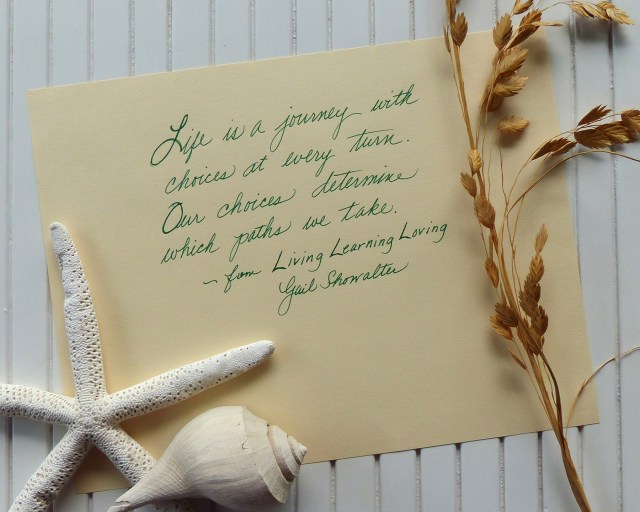 Life is a journey with
choices at every turn.
Our choices determine
which paths we take.
~ from Living Learning Loving
Gail Showalter